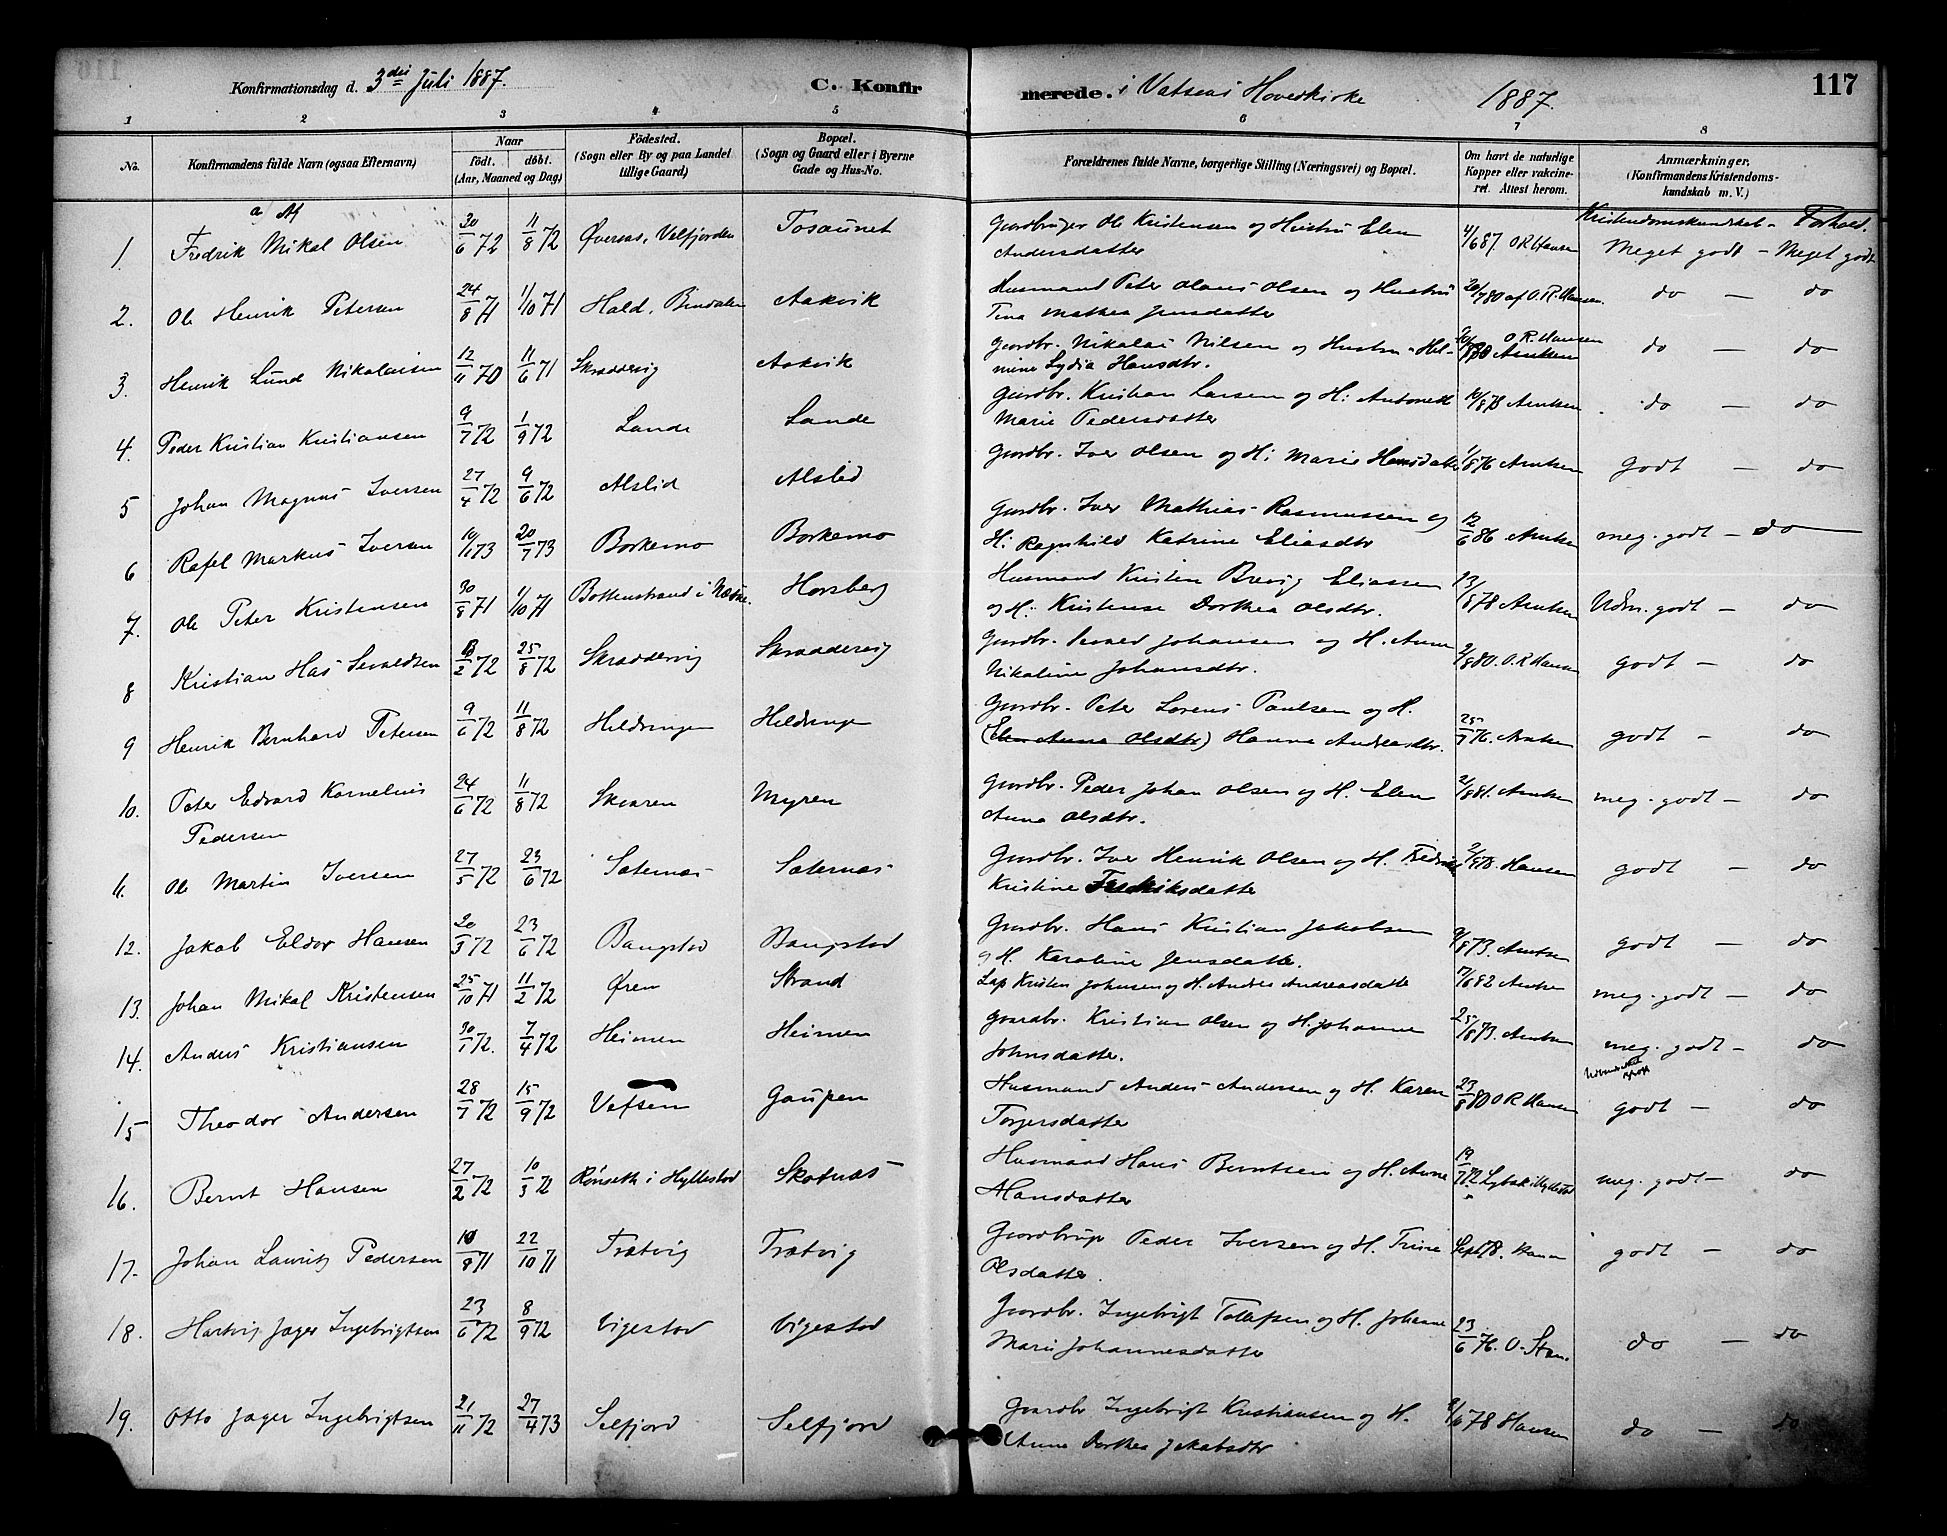 Konfirmationsdag d. 3die Juli 1887. C. Konfirmerede. i Vatsens Hovedkirke 1887. 117
1 2 3 4 5 6 7 8
No. Konfirmandens fulde Navn (ogsaa Efternavn) Naar födt. döbt. (Aar, Maaned og Dag) Födested. (Sogn eller By og paa Landet tillige Gaard) Bopæl. (Sogn og Gaard eller i Byerne Gade og Hus-No. Forældrenes fulde Navne, borgerlige Stilling (Næringsvei) og Bopæl. Om havt de naturlige Kopper eller vakcineret. Attest herom. Anmærkninger. (Konfirmandens Kristendomskundskab m. V.)
Kristendomskundskab - Forhold.
1. Fredrik Mikal Olsen 30/6 72 11/8 72 Øveraas, Velfjorden Tosaunet Gaardbruger Ole Kristensen og Hustru Elen Andersdatter 4/6 87. O R Hansen Meget godt - Meget godt
2. Ole Henrik Petersen 24/8 71 1/10 71 Hald, Bindalen Aakvik Husmand Peter Olaus Olsen og Hustru Tina Mathea Jensdatter 20/7 80 af O. R. Hansen. do - do
3. Henrik Lund Nikolaisen 12/11 70 11/6 71 Skraddervig Aakvik Gaardbr. Nikolai Nilsen og Hustru Helmine Lydia Hansdtr. O R. Hansen do - do
4. Peder Kristian Kristiansen 9/7 72 1/9 72 Lande Lande Gaardbr. Kristian Larsen og H: Antonette Marie Pedersdatter Arntsen do - do
5 Johan Magnus Iversen 27/4 72 9/6 72 Alslid Alslid Gaardbr. Iver Olsen og H: Marie Hansdatter 1/8 76 Arntsen godt - do
6 Rafel Markus Iversen 10/1 73 20/7 73 Borkemo Borkemo Gaardbr. Iver Mathias Rasmussen og H: Ragnhild Katrine Eliasdtr 12/6 86 Arntsen meg. godt - do
7. Ole Peter Kristensen 30/8 71 1/10 71 Bottenstrand i Horsberg Husmand Kristen Brevig Eliassen og H: Kristense Dorthea Olsdtr. 13/8 78 Arntsen Udm. godt - do
8 Kristian Has Sevaldsen 25/8 72 Skraddervig Skraddervig Gaardbr. Sevald Johansen og H. Anne Nikoline Johansdtr. 2/8 80. O. R Hansen godt - do
9 Henrik Bernhard Petersen 9/6 72 11/8 72 Heldringen Heldringen Gaardbr. Peter Lorens Paulsen og H. (Elen Anna Olsdtr) Hanna Andreasdtr. 25/7 76. Arntsen godt - do
10. Peter Edvard Kornelius Pedersen 24/6 72 11/8 72 Skaaren Myren Gaardbr. Peder Johan Olsen og H. Elen Anna Olsdtr. 2/8 81. Arntsen meg. godt - do
11. Ole Martin Iversen 27/5 72 23/6 72 Saternæs Saternæs Gaardbr. Iver Henrik Olsen og H. Kristine Fredriksdatter Hansen godt - do
12. Jakob Eldor Hansen 20/3 72 23/6 72 Bangstad Bangstad Gaardbr. Hans Kristian Jakobsen og H. Karoline Jensdatter. 9/8 73. Arntsen godt - do
13. Johan Mikal Kristensen 25/10 71 11/2 72 Øren Strand Lap Kristen Johnsen og H. Andreasdatter 17/6 82 Arntsen meg. godt - do
14. Anders Kristiansen 30/1 72. 7/4 72 Heimen Heimen Gaardbr. Kristian Olsen og H. Johanne Johnsdatter. 25/8 73. Arntsen meg. godt - do
15 Theodor Andersen 28/7 72 15/9 72 Vefsen Gaupen Husmand Anders Andersen og H. Karen Torgersdatter 23/8 80 O R Hansen godt - do
16. Bernt Hansen 27/2 72 10/3 72 Rönseth i Hyllestad Skotnæs Husmand Hans Berntsen og H. Anne Hansdatter 19/7 72 meg. godt - do
17. Johan Lauritz Pedersen 22/10 71 Trætvig Trætvig Gaardbruger Peder Iversen og H. Trine Olsdatter. Sept 78. godt - do
18. Hartvig Jager Ingebrigtsen 23/6 72 8/9 72 Vigestad Vigestad Gaardbr. Ingebrigt Tollefsen og H. Johanne Marie Johannesdatter 23/6 76. do - do
19. Otto Jager Ingebrigtsen 21/11 72 27/4 73 Selfjord Selfjord Gaardbr Ingebrigt Kristiansen og H. Anne Dorthea Jakobsdtr 78 Hansen do - do